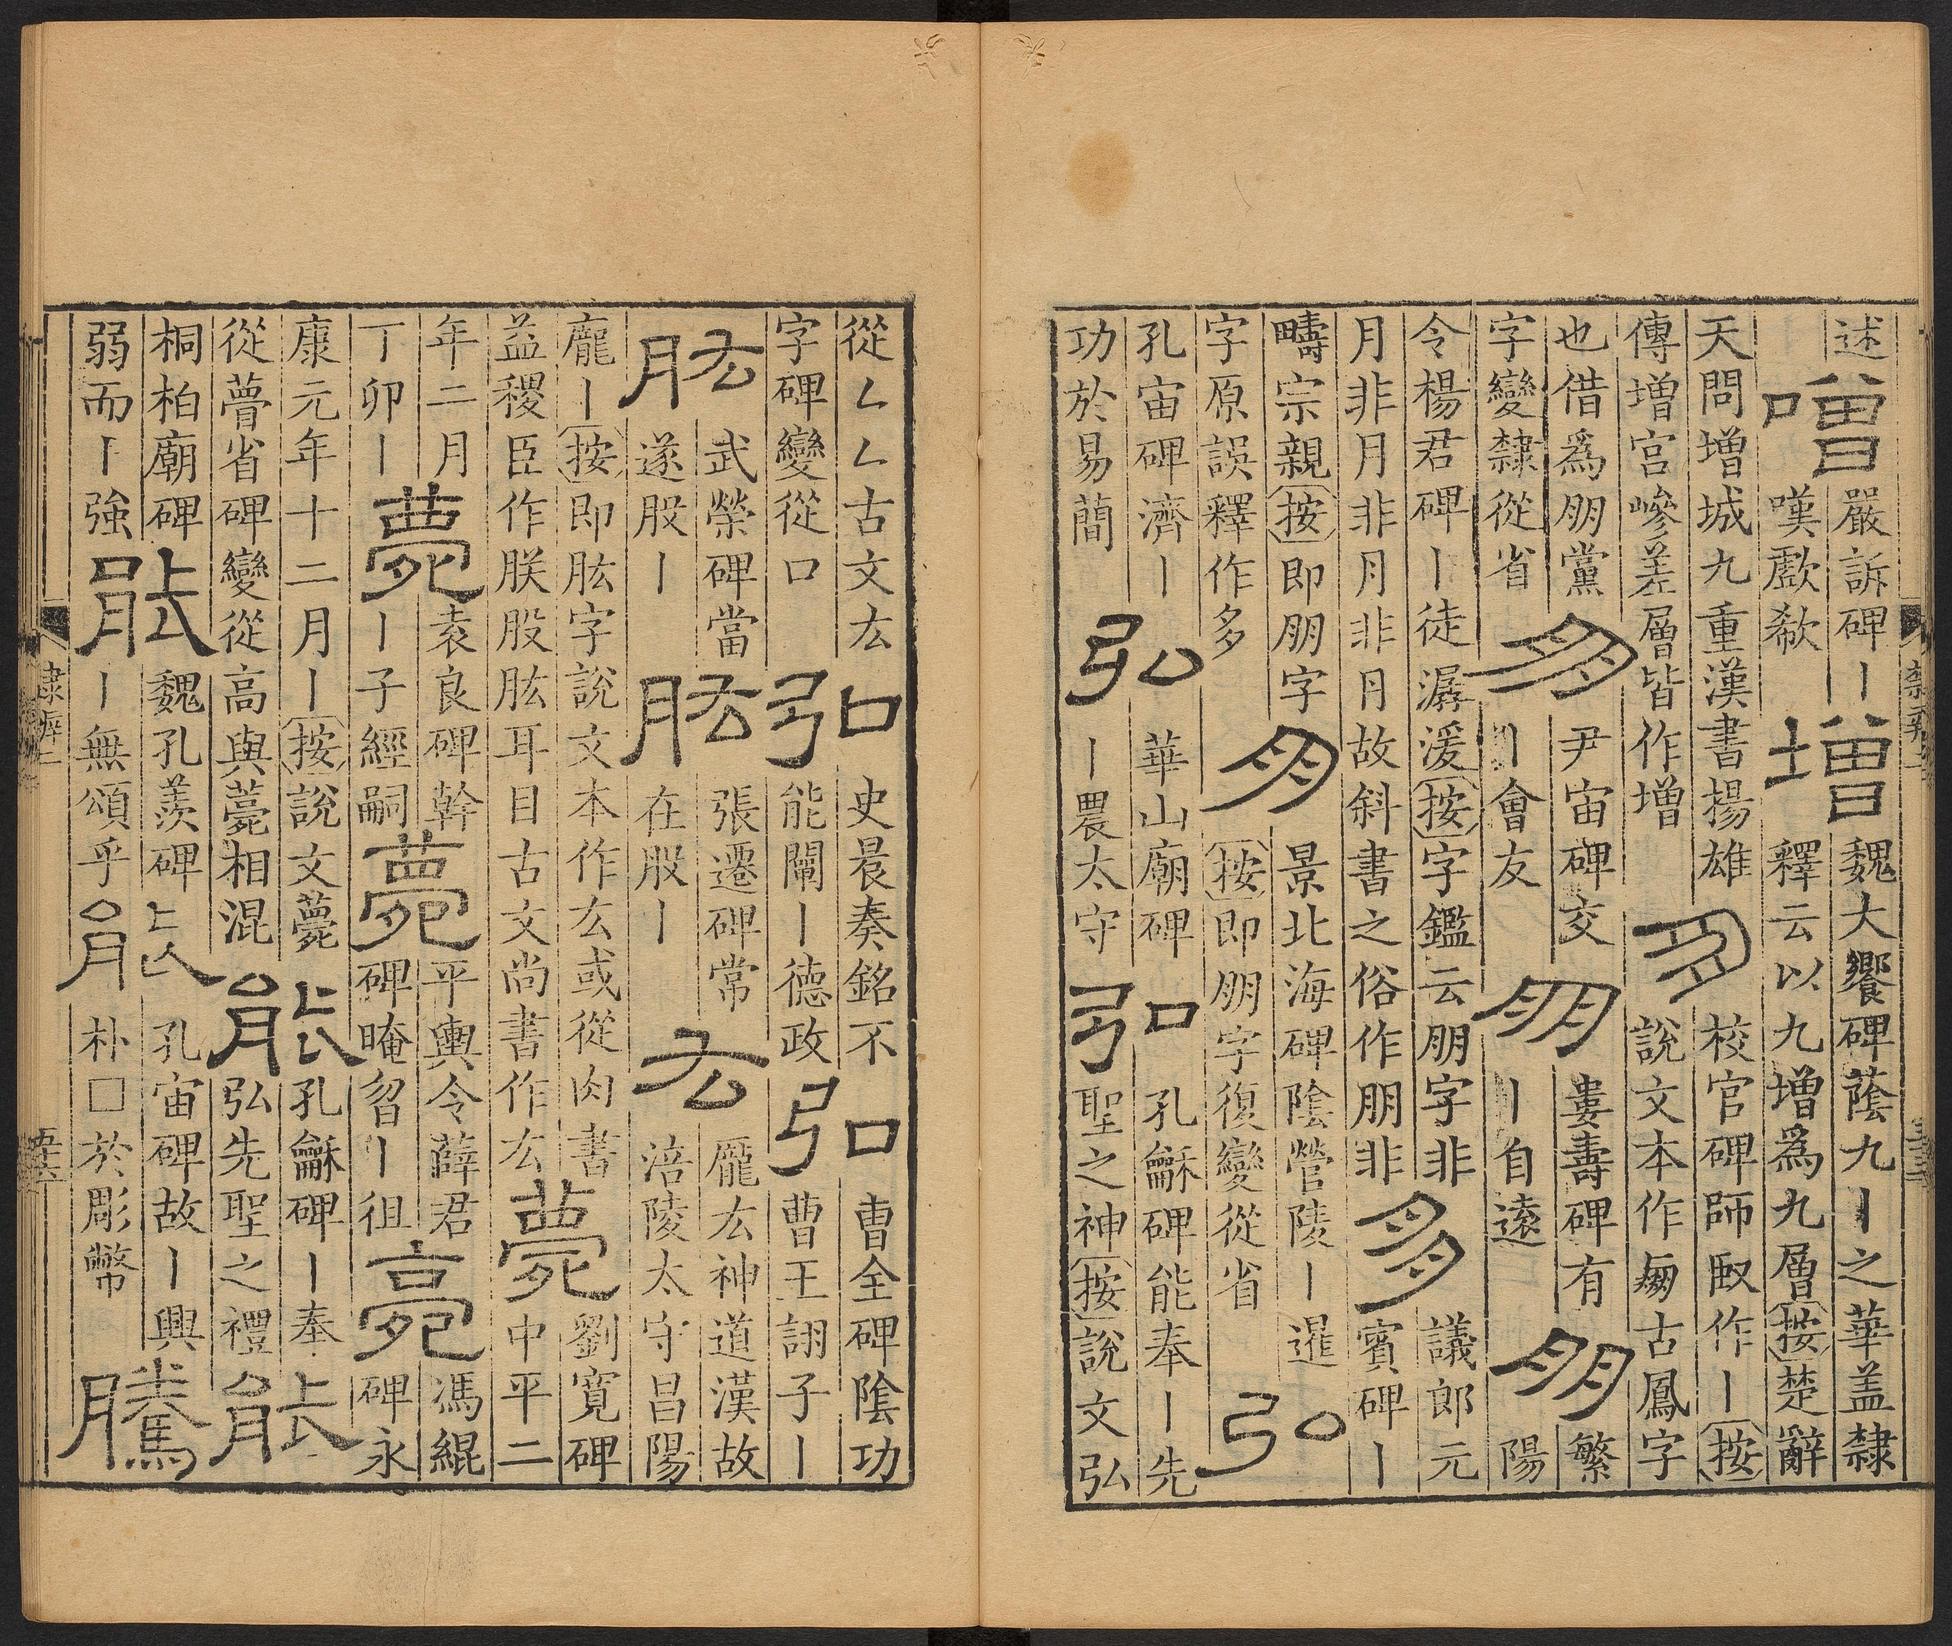 述
噌
嚴訴碑丨
嘆歔欷
增
魏大饗碑蔭九丨之華盖隸
釋云以九增爲九層按楚辭
天問增城九重漢書揚雄
傳增宮嵾差層皆作增
朋
校官碑師臤作丨按
說文本作朋古鳳字
也借爲朋黨
字變隸從省
朋
尹宙碑交
丨會友
朋
婁壽碑有
丨自遠
朋
繁
陽
令楊君碑丨徒潺湲按字鑑云朋字非
月非月非月非丹故斜書之俗作朋非
朋
議郎元
賓碑丨
疇宗親按即朋字
字原誤釋作多
朋
景北海碑陰營陵丨暹
按即朋字復變從省
弘
孔宙碑濟丨
功於易簡
弘
華山廟碑
丨農太守
弘
孔龢碑能奉丨先
聖之神按說文弘
從厶厶古文厷
字碑變從口
弘
史晨奏銘不
能闡丨德政
弘
曹全碑陰功
曹王詡子丨
肱
武榮碑當
遂股丨
肱
張遷碑常
在股丨
厷
龐厷神道漢故
涪陵太守昌陽
龐丨按即肱字說文本作厷或從肉書
益稷臣作朕股肱耳目古文尚書作厷
薨
劉寬碑
中平二
年二月
丁卯丨
薨
袁良碑幹
丨子經嗣
薨
平輿令薛君
碑晻曶丨徂
薨
馮緄
碑永
康元年十二月丨按說文薨
從瞢省碑變從高與薨相混
能
孔龢碑丨奉
弘先聖之禮
能
桐柏廟碑
弱而丨強
能
魏孔羨碑
丨無頌乎
能
孔宙碑故丨興
朴□於彫幣
騰